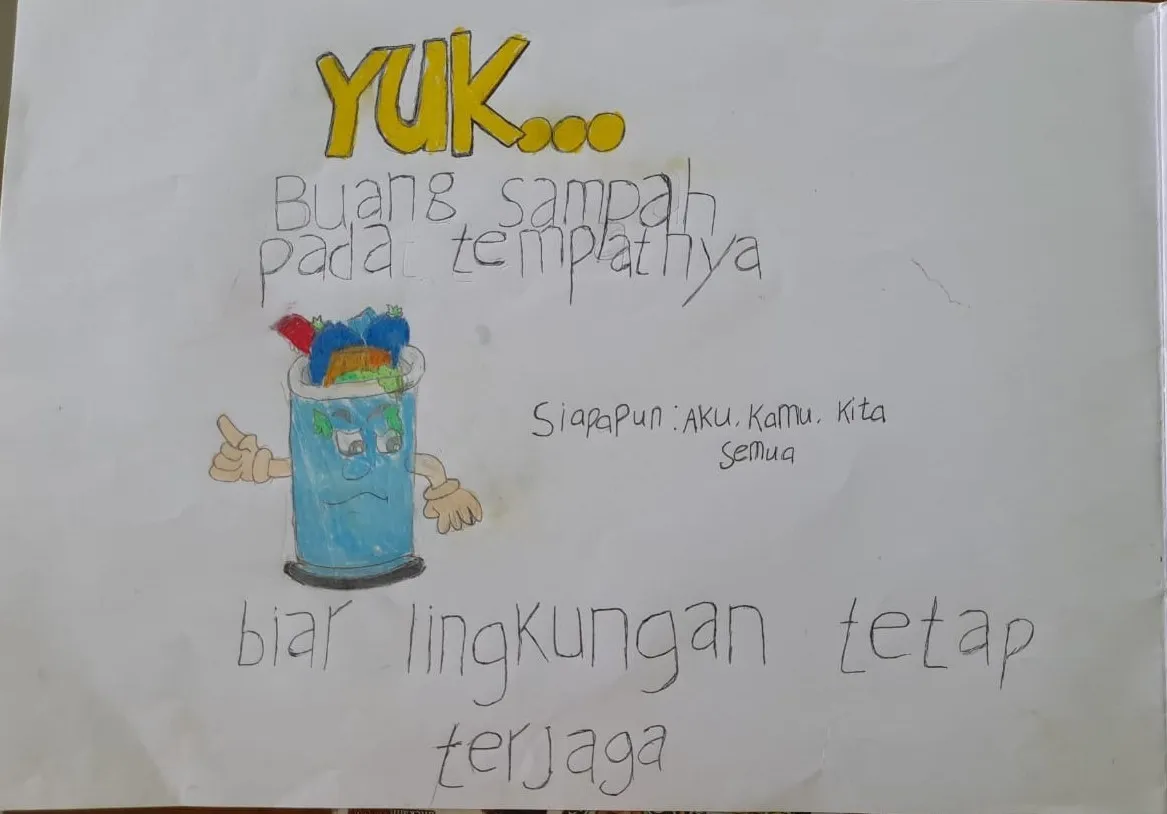 YUK...
Buang sampah
pada tempatnya
Siapapun : AKU. Kamu. Kita
semua
biar lingkungan tetap
terjaga